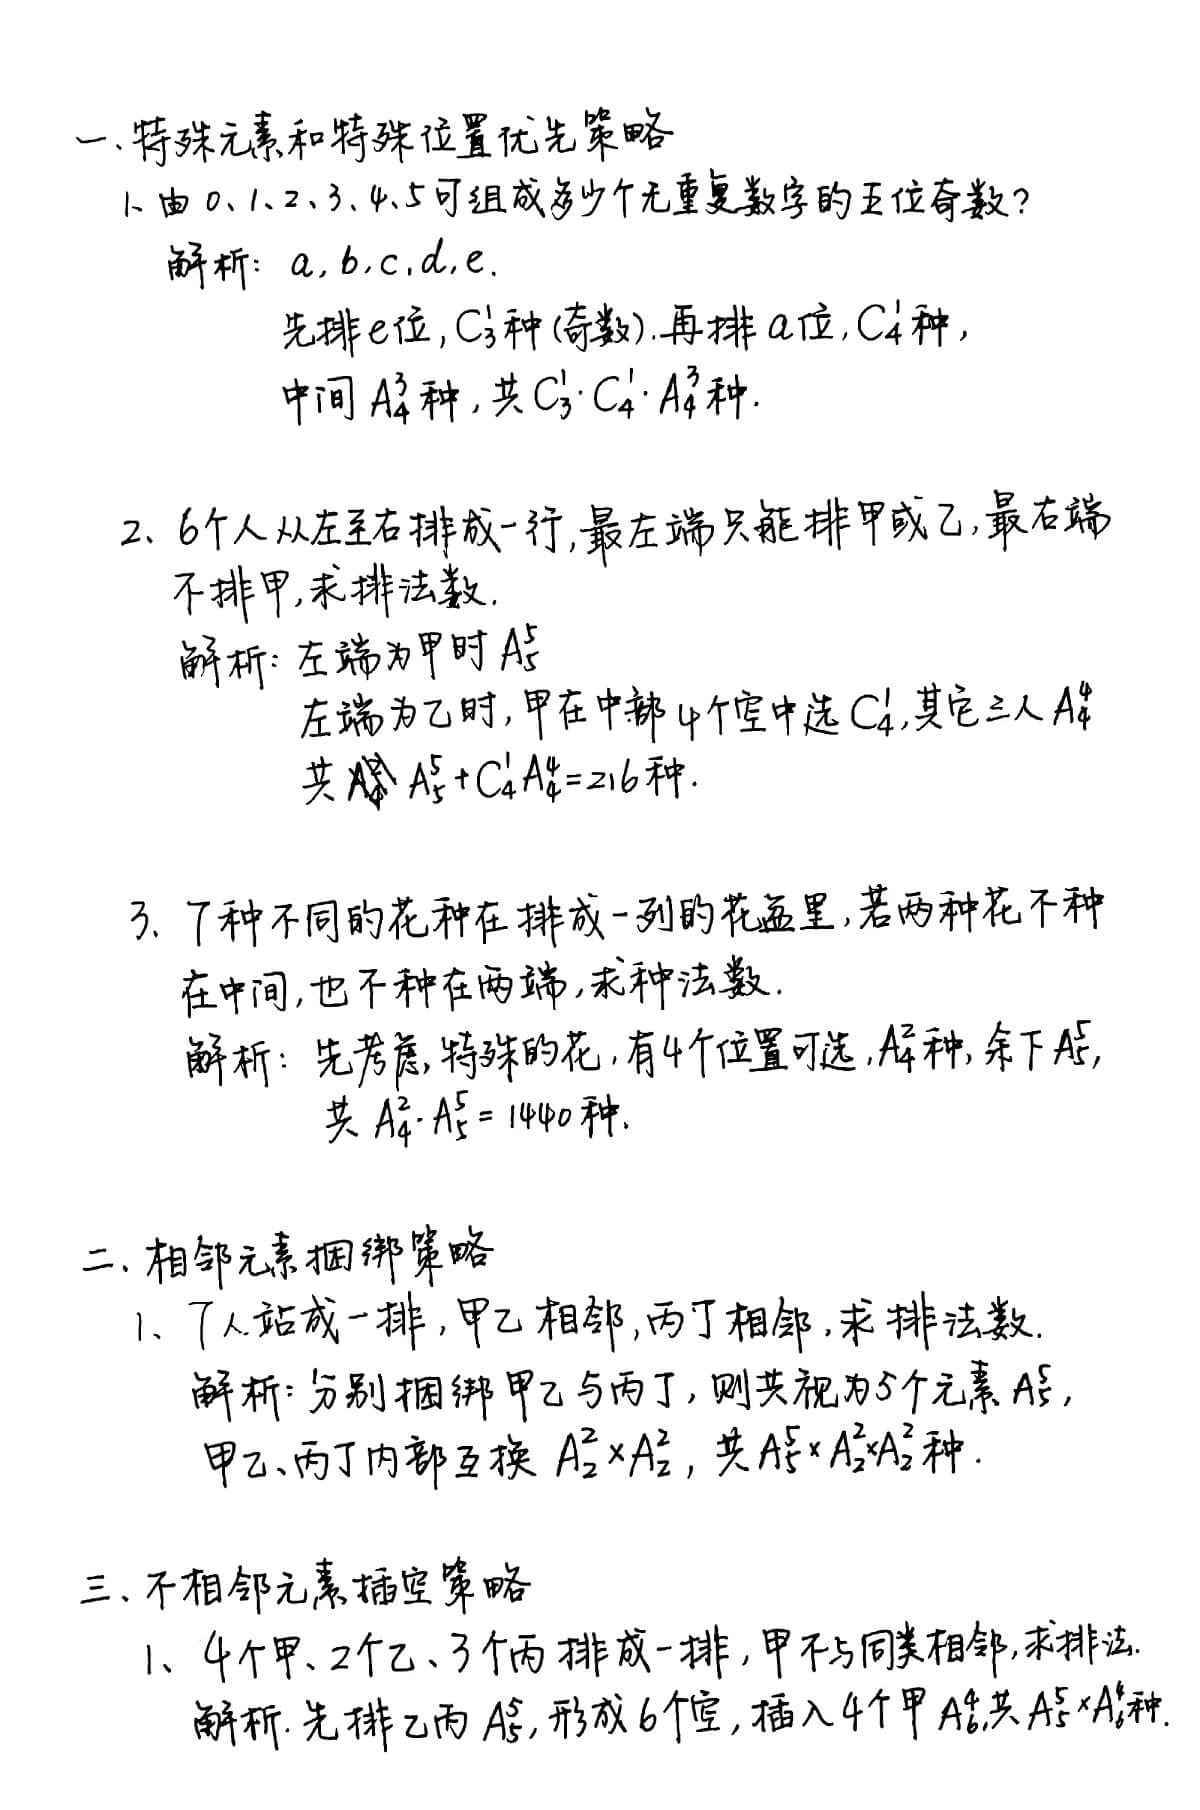 一、特殊元素和特殊位置优先策略
1、由0、1、2、3、4、5可组成多少个无重复数字的五位奇数?
解析: a, b, c, d, e.
先排e位, C₃¹种(奇数).再排a位, C₄¹种,
中间 A₄³种, 共C₃¹·C₄¹·A₄³种.
2、6个人从左至右排成一行,最左端只能排甲或乙,最右端
不排甲,求排法数.
解析: 左端为甲时 A₅⁵
左端为乙时, 甲在中部4个空中选C₄¹,其它三人A₄⁴
共 A₅⁵+C₄¹A₄⁴=216种.
3、7种不同的花种在排成一列的花盆里,若两种花不种
在中间,也不种在两端,求种法数.
解析: 先考虑特殊的花,有4个位置可选,A₄²种,余下A₅⁵,
共 A₄²·A₅⁵=1440种.
二、相邻元素捆绑策略
1、7人站成一排,甲乙相邻,丙丁相邻,求排法数.
解析:分别捆绑甲乙与丙丁,则共视为5个元素A₅⁵,
甲乙、丙丁内部互换 A₂²×A₂², 共A₅⁵×A₂²×A₂²种.
三、不相邻元素插空策略
1、4个甲、2个乙、3个丙排成一排,甲不与同类相邻,求排法.
解析.先排乙丙A₅⁵,形成6个空,插入4个甲A₆⁴,共A₅⁵×A₆⁴种.